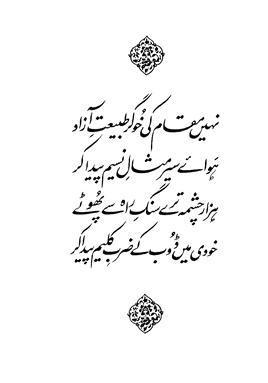 نہیں مقام کی خُوگر طبیعتِ آزاد
ہَوائے سیر مثالِ نسیم پیدا کر
ہزار چشمہ ترے سنگِ راہ سے پھُوٹے
خودی میں ڈُوب کے ضربِ کلیم پیدا کر